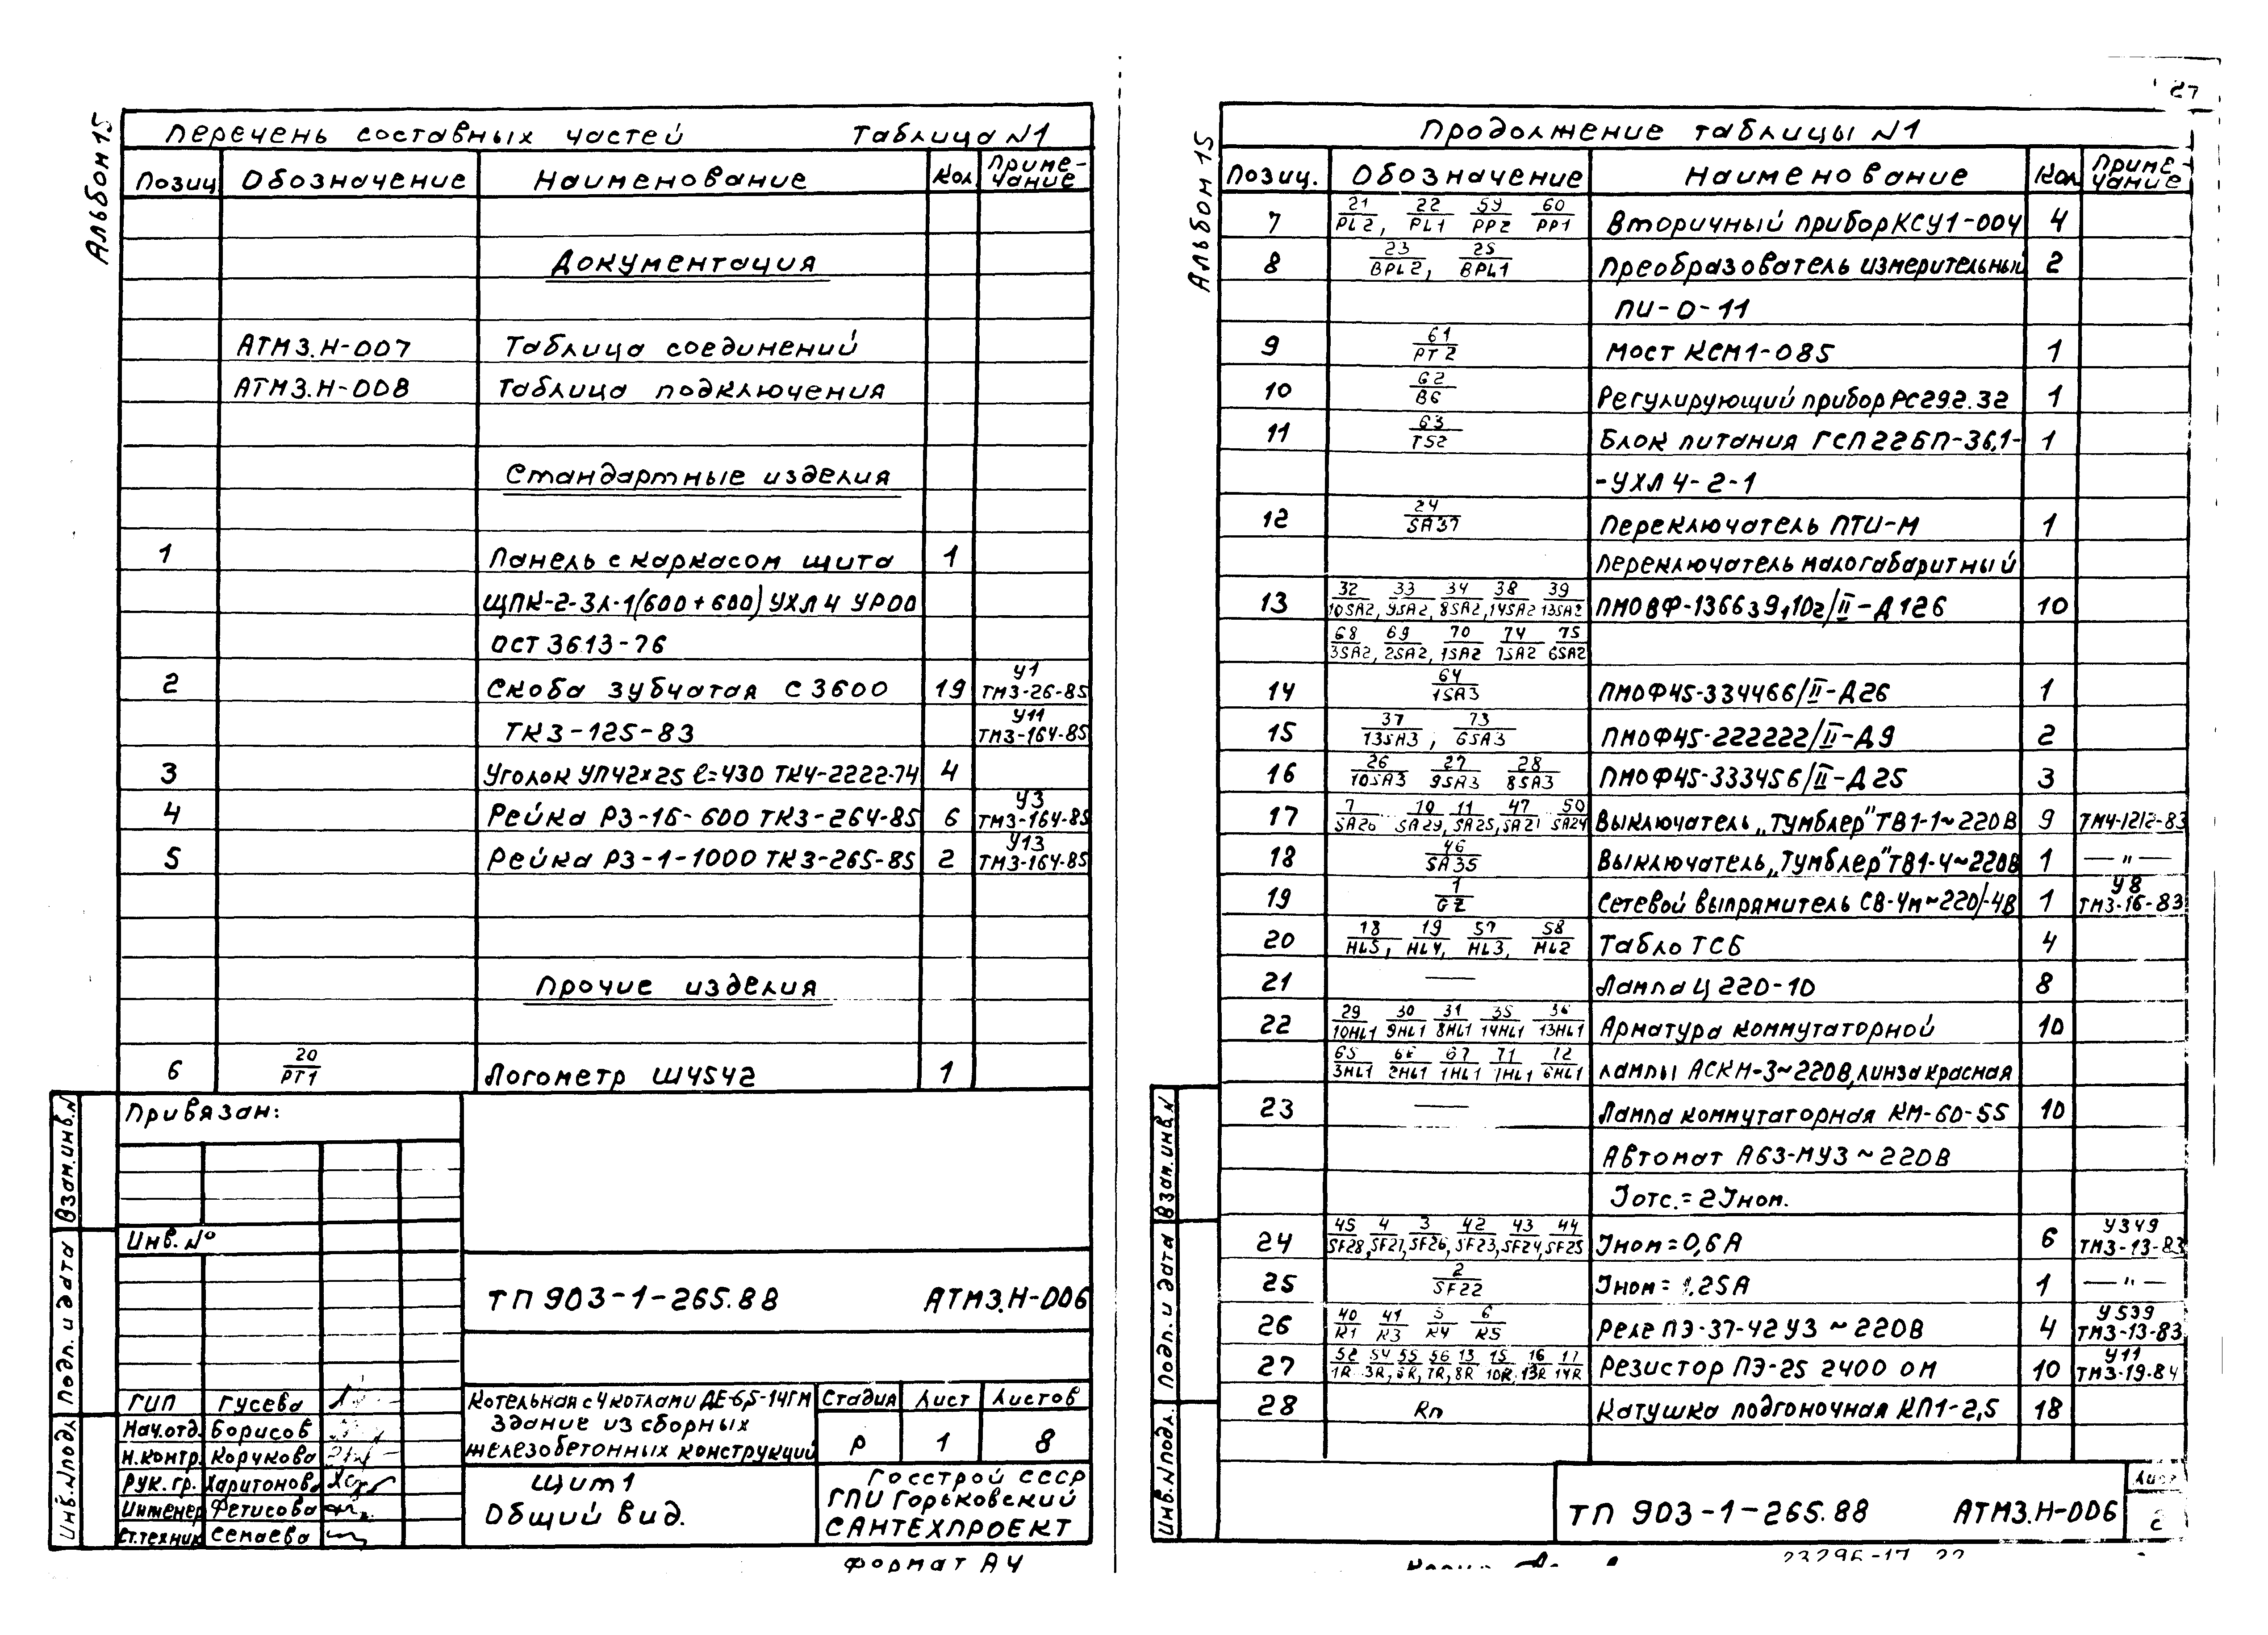 Альбом 15
Перечень составных частей Таблица N1
Позиц. Обозначение Наименование Кол Приме-
чание
Документация
АТМ3.Н-007 Таблица соединений
АТМ3.Н-008 Таблица подключения
Стандартные изделия
1 Панель с каркасом щита 1
ЩПК-2-3Л-1(600+600) УХЛ4 УР00
ОСТ 3613-76
2 Скоба зубчатая С3600 19 У1 ТМ3-26-85
ТК3-125-83 У11 ТМ3-164-85
3 Уголок УП42×25 ℓ=430 ТК4-2222-74 4
4 Рейка Р3-16-600 ТК3-264-85 6 У3 ТМ3-164-85
5 Рейка Р3-1-1000 ТК3-265-85 2 У13 ТМ3-164-85
Прочие изделия
6 20/РТ1 Логометр Ш4542 1
Привязан:
Инв. N°
ТП 903-1-265.88 АТМ3.Н-006
ГИП Гусева
Нач.отд. Борисов
Н.контр. Корчкова
Рук. гр. Харитонов
Инженер Фетисова
Ст.техник Семаева
Котельная с 4 котлами ДЕ-6,5-14ГМ
Здание из сборных
железобетонных конструкций
Стадия Лист Листов
Р 1 8
Щит 1
Общий вид.
Госстрой СССР
ГПИ Горьковский
САНТЕХПРОЕКТ
Формат А4
Взам.инв.N
Подп. и дата
Инв.N подл.
27
Альбом 15
Продолжение таблицы N1
Позиц. Обозначение Наименование Кол Приме-
чание
7 21/PL2, 22/PL1 59/PP2 60/PP1 Вторичный прибор КСУ1-004 4
8 23/BPL2, 25/BPL1 Преобразователь измерительный 2
ПИ-0-11
9 61/PT2 Мост КСМ1-085 1
10 62/B6 Регулирующий прибор РС29.2.32 1
11 63/TS2 Блок питания ГСП 22БП-36,1- 1
-УХЛ4-2-1
12 24/SA37 Переключатель ПТИ-М 1
Переключатель малогабаритный
13 32/10SA2, 33/9SA2, 34/8SA2, 38/14SA2 39/13SA2 ПМОВФ-136639,10г/II-Д126 10
68/3SA2, 69/2SA2, 70/1SA2 74/7SA2 75/6SA2
14 64/1SA3 ПМОФ45-334466/II-Д26 1
15 37/13SA3, 73/6SA3 ПМОФ45-222222/II-Д9 2
16 26/10SA3 27/9SA3 28/8SA3 ПМОФ45-333456/II-Д25 3
17 7/SA20 10/SA29, 11/SA25, 47/SA21 50/SA24 Выключатель „Тумблер" ТВ1-1~220В 9 ТМ4-1212-83
18 46/SA35 Выключатель „Тумблер" ТВ1-4~220В 1 —"—
19 1/GZ Сетевой выпрямитель СВ-4м~220/-4В 1 У8 ТМ3-16-83
20 18/HL5, 19/HL4, 57/HL3, 58/HL2 Табло ТСБ 4
21 — Лампа Ц 220-10 8
22 29/10HL1 30/9HL1 31/8HL1 35/14HL1 36/13HL1 Арматура коммутаторной 10
65/3HL1 66/2HL1 67/1HL1 71/7HL1 72/6HL1 лампы АСКМ-3~220В, линза красная
23 — Лампа коммутаторная КМ-60-55 10
Автомат А63-МУ3 ~ 220В
Jотс. = 2Jном.
24 45/SF28, 4/SF27, 3/SF26, 42/SF23, 43/SF24, 44/SF25 Jном = 0,6А 6 У349 ТМ3-13-83
25 2/SF22 Jном = 1,25А 1 —"—
26 40/К1 41/К3 5/К4 6/К5 Реле ПЭ-37-42 У3 ~ 220В 4 У539 ТМ3-13-83
27 52/1R 54/3R, 55/6R, 56/7R, 13/8R 15/10R, 16/13R 17/14R Резистор ПЭ-25 2400 Ом 10 У11 ТМ3-19-84
28 Rп Катушка подгоночная КП1-2,5 18
ТП 903-1-265.88 АТМ3.Н-006
Лист
2
Взам.инв.N
Подп. и дата
Инв.N подл.